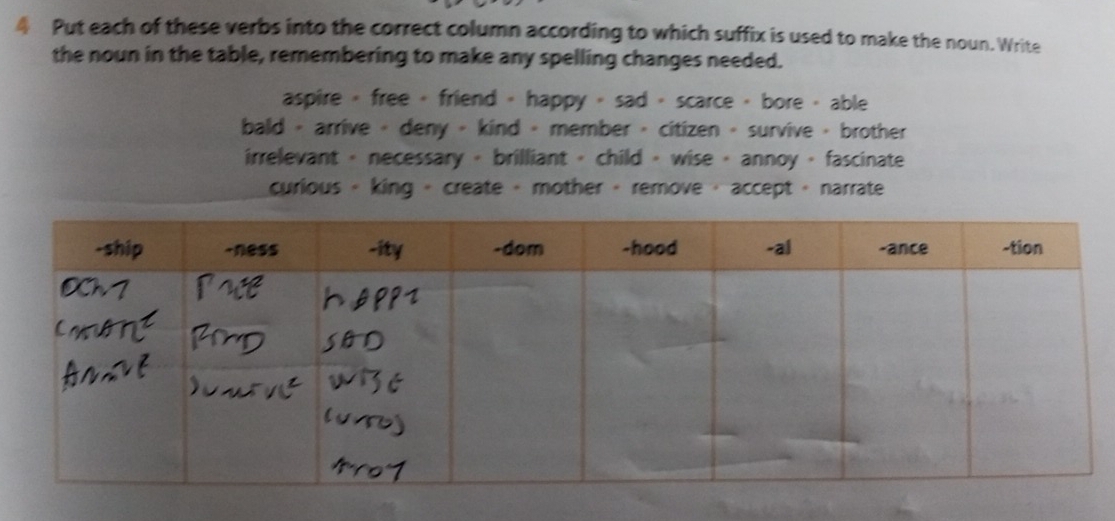 4 Put each of these verbs into the correct column according to which suffix is used to make the noun. Write
the noun in the table, remembering to make any spelling changes needed.
aspire • free • friend • happy • sad • scarce • bore • able
bald • arrive • deny • kind • member • citizen • survive • brother
irrelevant • necessary • brilliant • child • wise • annoy • fascinate
curious • king • create • mother • remove • accept • narrate
-ship -ness -ity -dom -hood -al -ance -tion
SAD
WISE